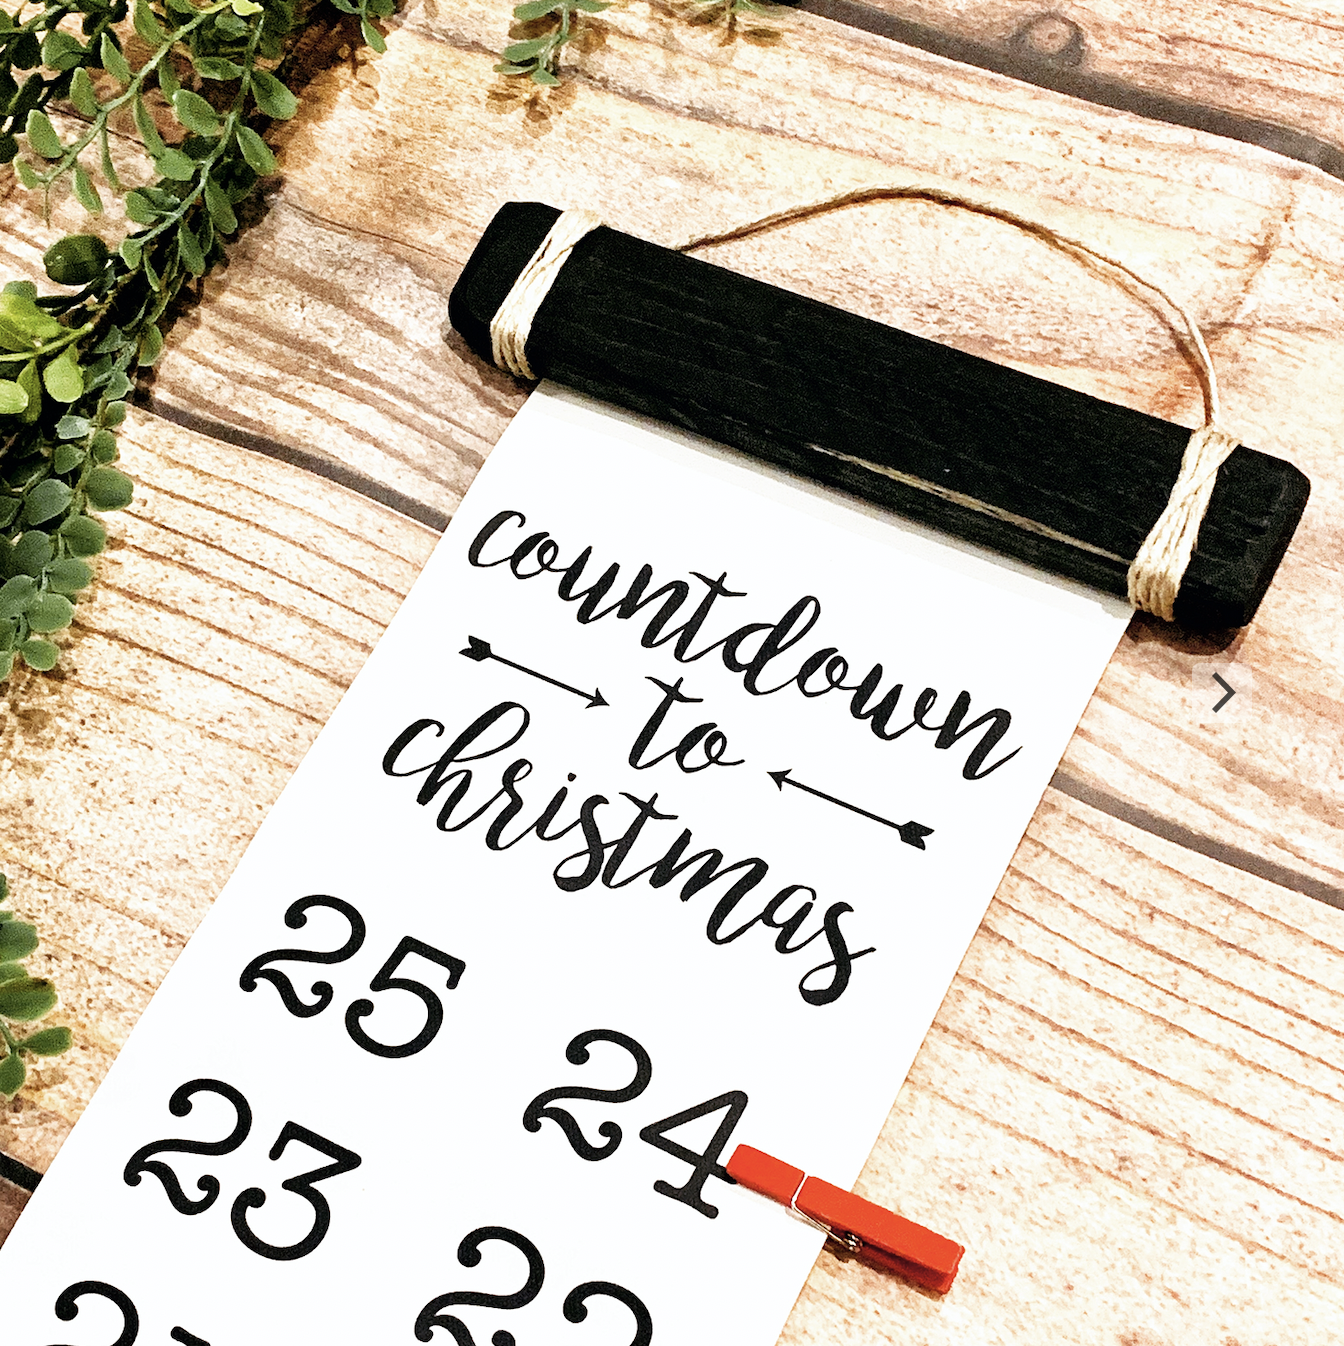 countdown
to
christmas
25
24
23
22